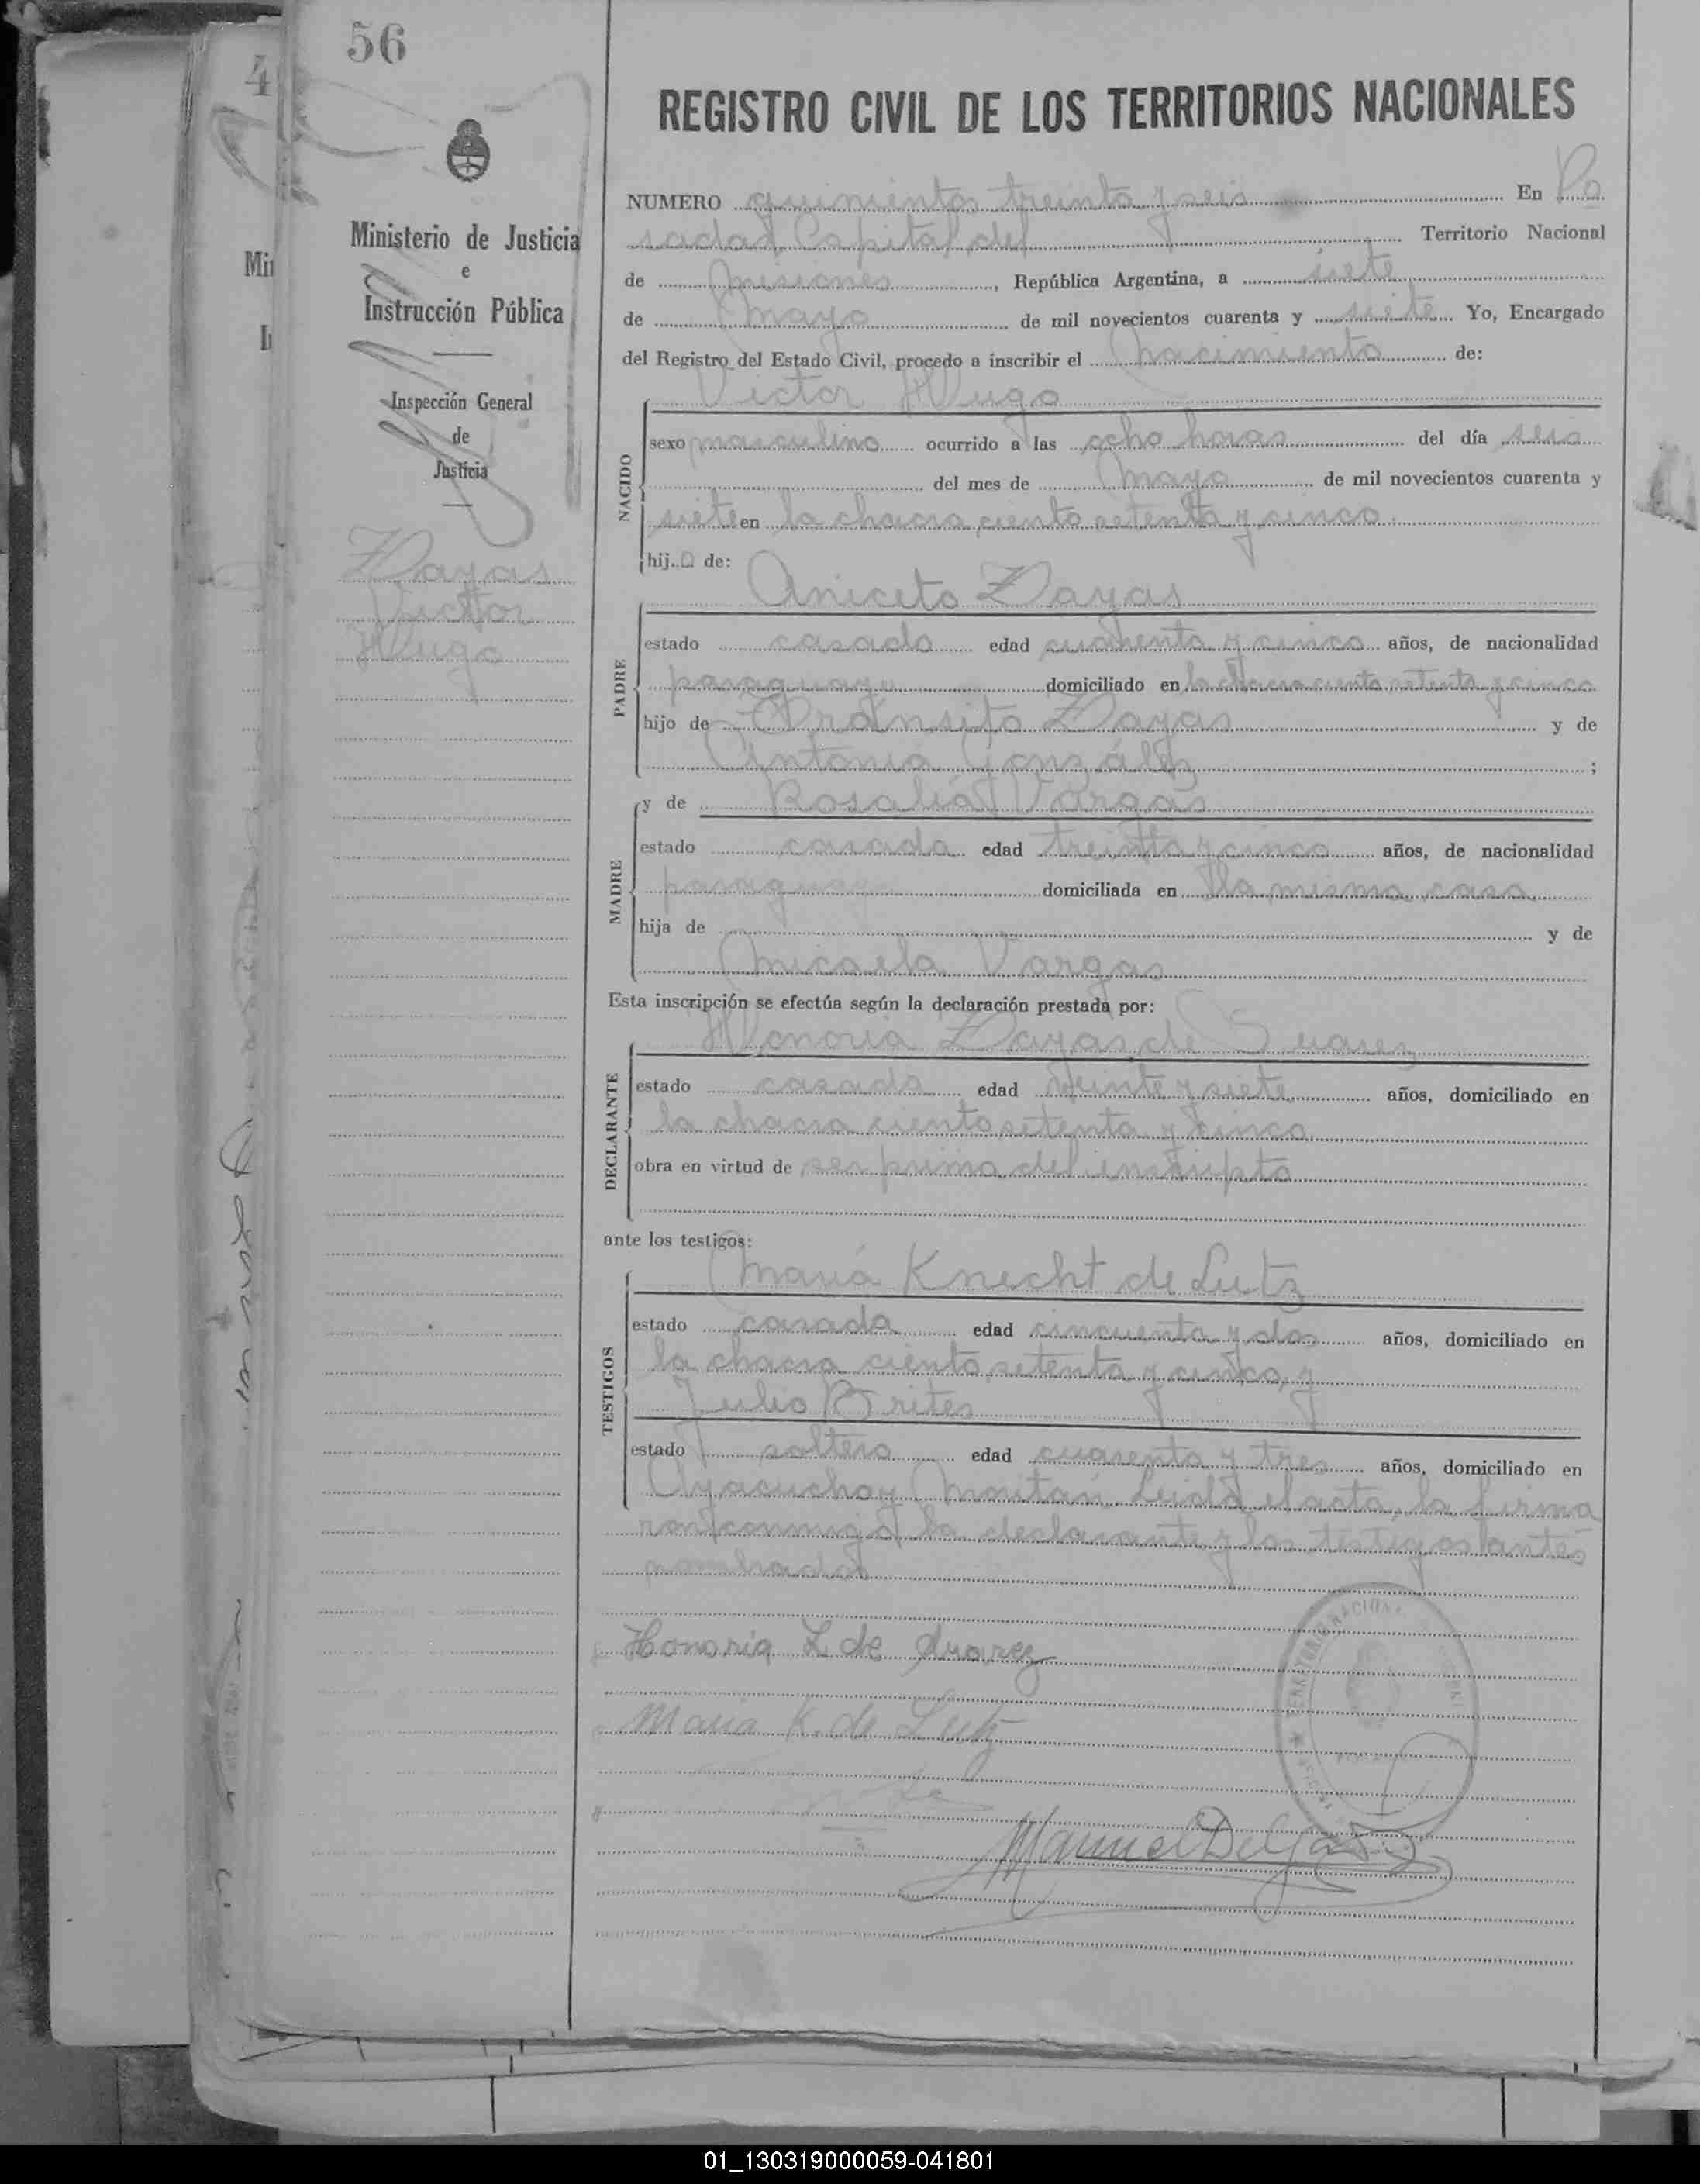 56
4
REGISTRO CIVIL DE LOS TERRITORIOS NACIONALES
Ministerio de Justicia
e
Instrucción Pública
Inspección General
de
Justicia
Zayas
Victor
Hugo
NUMERO quinientos treinta y seis En Po
sadas, Capital del Territorio Nacional
de Misiones, República Argentina, a siete
de Mayo de mil novecientos cuarenta y siete Yo, Encargado
del Registro del Estado Civil, procedo a inscribir el nacimiento de:
Victor Hugo
NACIDO
sexo masculino ocurrido a las ocho horas del día seis
del mes de Mayo de mil novecientos cuarenta y
siete en la chacra ciento setenta y cinco
hijo de:
Aniceto Zayas
PADRE
estado casado edad cuarenta y cinco años, de nacionalidad
paraguayo domiciliado en la chacra ciento setenta y cinco
hijo de Tránsito Zayas y de
Antonia González ;
y de Rosalía Vargas
MADRE
estado casada edad treinta y cinco años, de nacionalidad
paraguaya domiciliada en la misma casa
hija de y de
Micaela Vargas
Esta inscripción se efectúa según la declaración prestada por:
Honoria Zayas de Suarez
DECLARANTE
estado casada edad veinte y siete años, domiciliado en
la chacra ciento setenta y cinco
obra en virtud de ser prima del inscripto
ante los testigos:
María Knecht de Lutz
TESTIGOS
estado casada edad cincuenta y dos años, domiciliado en
la chacra ciento setenta y cinco, y
Julio Brites
estado soltero edad cuarenta y tres años, domiciliado en
Ayacucho y Leída el acta, la firma
ron conmigo la declarante y los testigos antes
nombrados
Honoria Z de Suarez
Maria K. de Lutz
01_130319000059-041801